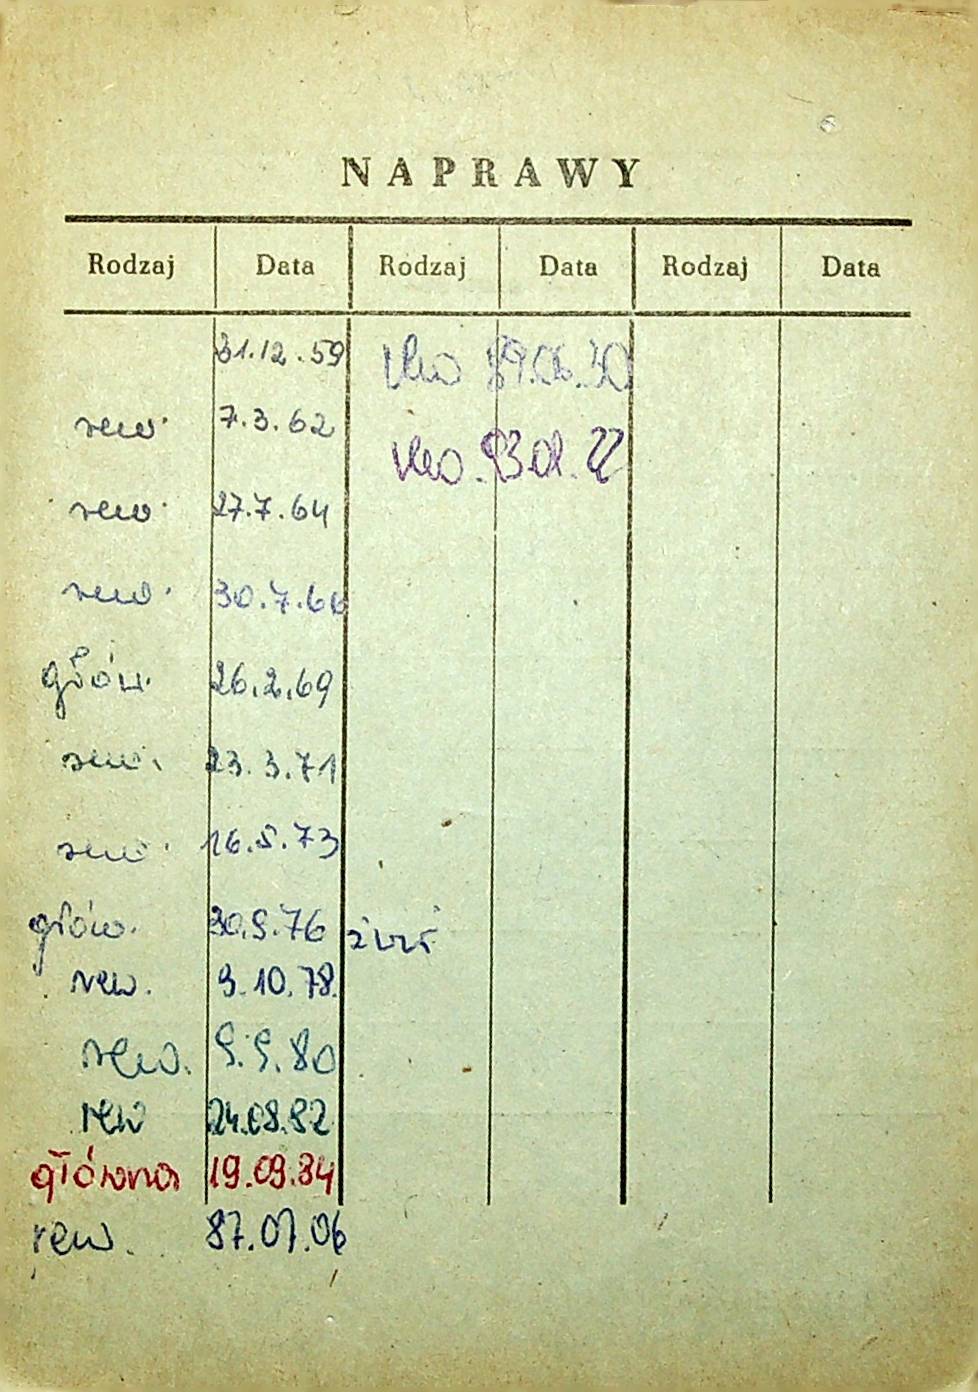 NAPRAWY
Rodzaj Data Rodzaj Data Rodzaj Data
31.12.59 rew 89.06.30
rew. 7.3.62
rew. 93.01.22
rew. 27.7.64
rew. 30.7.66
głów. 26.2.69
rew. 23.3.71
rew. 16.5.73
głów. 30.9.76
rew. 9.10.78.
rew. 9.9.80
rew 24.08.82
główna 19.09.84
rew. 87.01.06